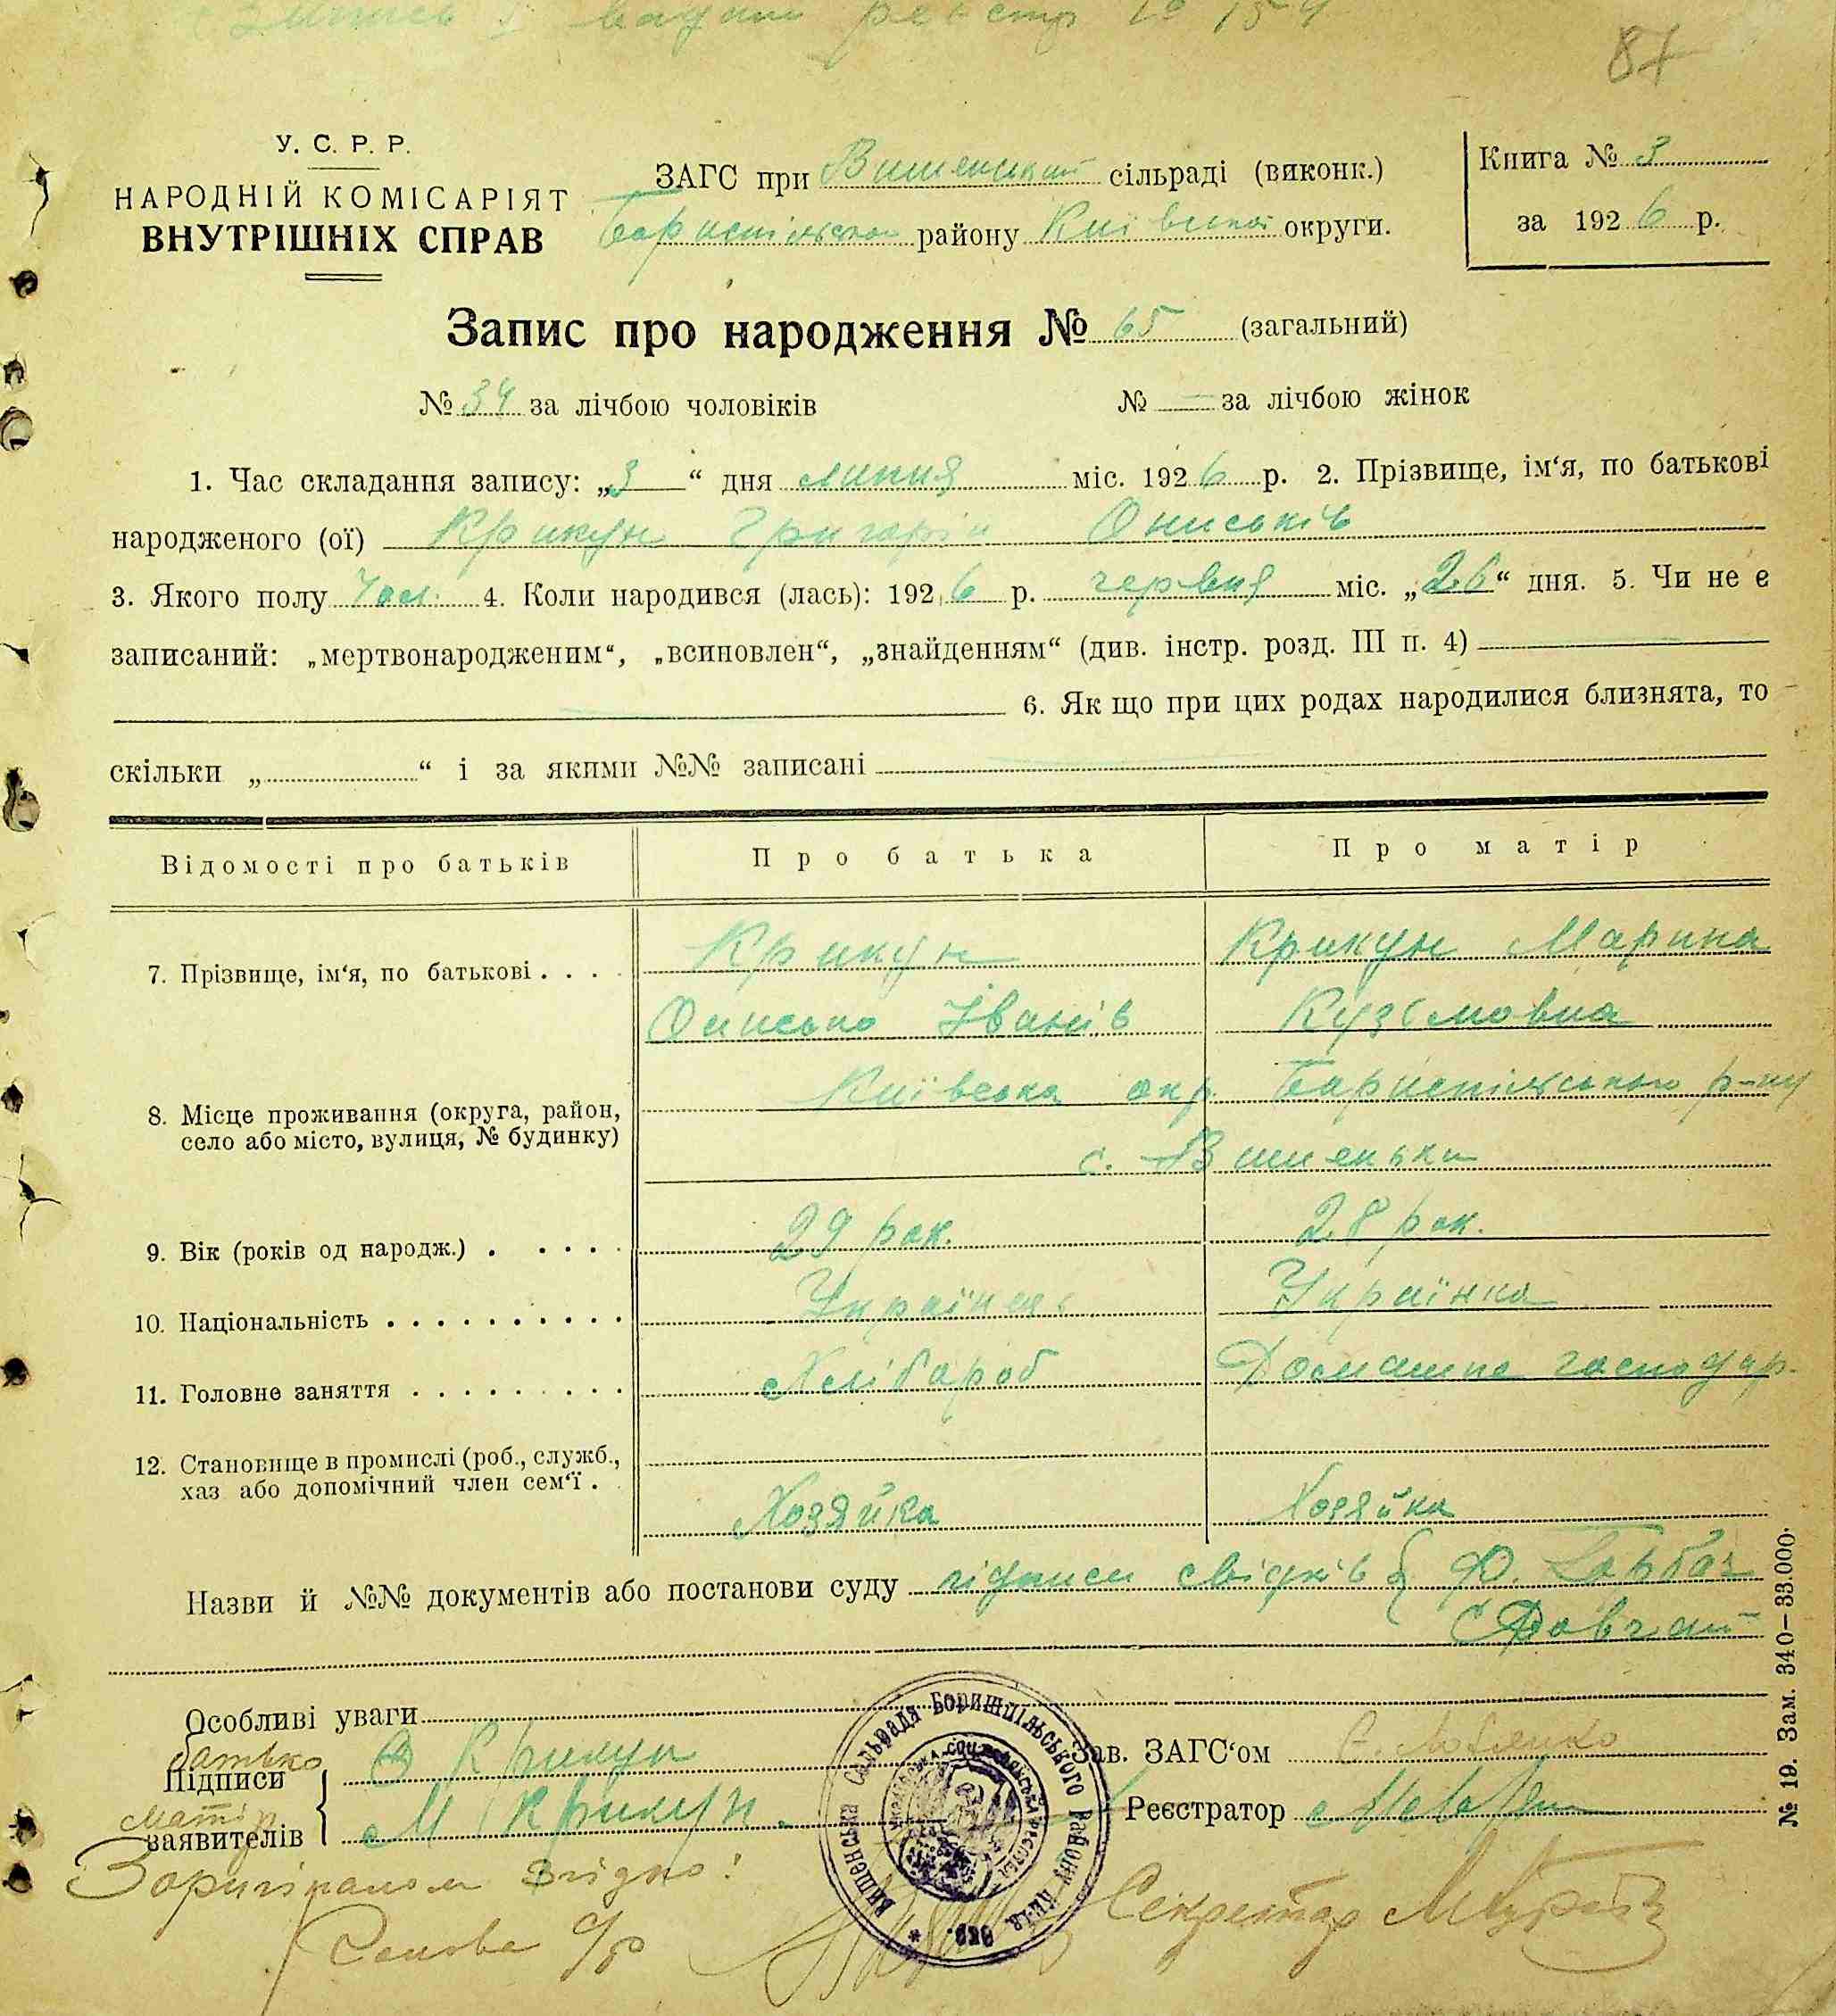 87
У. С. Р. Р.
НАРОДНІЙ КОМІСАРІЯТ
ВНУТРІШНІХ СПРАВ
ЗАГС при Вишенський сільраді (виконк.)
Бориспільского району Київської округи.
Книга № 3
за 1926 р.
Запис про народження № 65 (загальний)
№ 34 за лічбою чоловіків
№ — за лічбою жінок
1. Час складання запису: „3“ дня липня міс. 1926 р. 2. Прізвище, ім‘я, по батькові
народженого (ої) Крикун Григорій Ониськів
3. Якого полу чол. 4. Коли народився (лась): 1926 р. червня міс. „26“ дня. 5. Чи не є
записаний: „мертвонародженим“, „всиновлен“, „знайденням“ (див. інстр. розд. III п. 4)
6. Як що при цих родах народилися близнята, то
скільки „ “ і за якими №№ записані
Відомості про батьків
Про батька
Про матір
7. Прізвище, ім‘я, по батькові . . . .
Крикун
Крикун Марина
Онисько Іванів
Кузьмовна
8. Місце проживання (округа, район,
село або місто, вулиця, № будинку)
Київська окр. Бориспільського р-ну
с. Вишеньки
9. Вік (років од народж.) . . . . .
29 рок.
28 рок.
10. Національність . . . . . . . . . .
Українець
Українка
11. Головне заняття . . . . . . . . .
Хлібороб
Домашне господар.
12. Становище в промислі (роб., служб.,
хаз або допомічний член сем‘ї .
Хозяйка
Хозяйка
Назви й №№ документів або постанови суду підписи свідків Ф.
Довгий
Особливі уваги
батько
Підписи
О Крикун
матір
заявителів
М Крикун.
Зав. ЗАГС‘ом
Реєстратор
Вишенська Сільрада Боришпільського Району Київ. Окр.
№ 19. Зам. 340—33.000.
З оригіналом згідно!
Голова с/р
Секретар